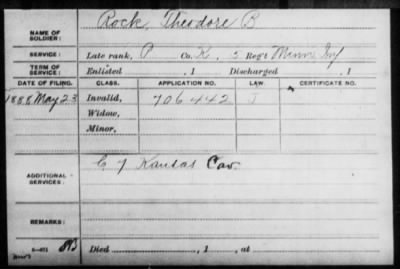 Rock, Theodore B
NAME OF SOLDIER:
SERVICE: Late rank, P Co. K, 5 Reg't Minn Inf
TERM OF SERVICE: Enlisted , 1 Discharged , 1
DATE OF FILING. CLASS. APPLICATION NO. LAW. CERTIFICATE NO.
1888 May 23 Invalid, 706442 J
Widow,
Minor,
C 7 Kansas Cav.
ADDITIONAL SERVICES:
REMARKS:
Died , 1 , at